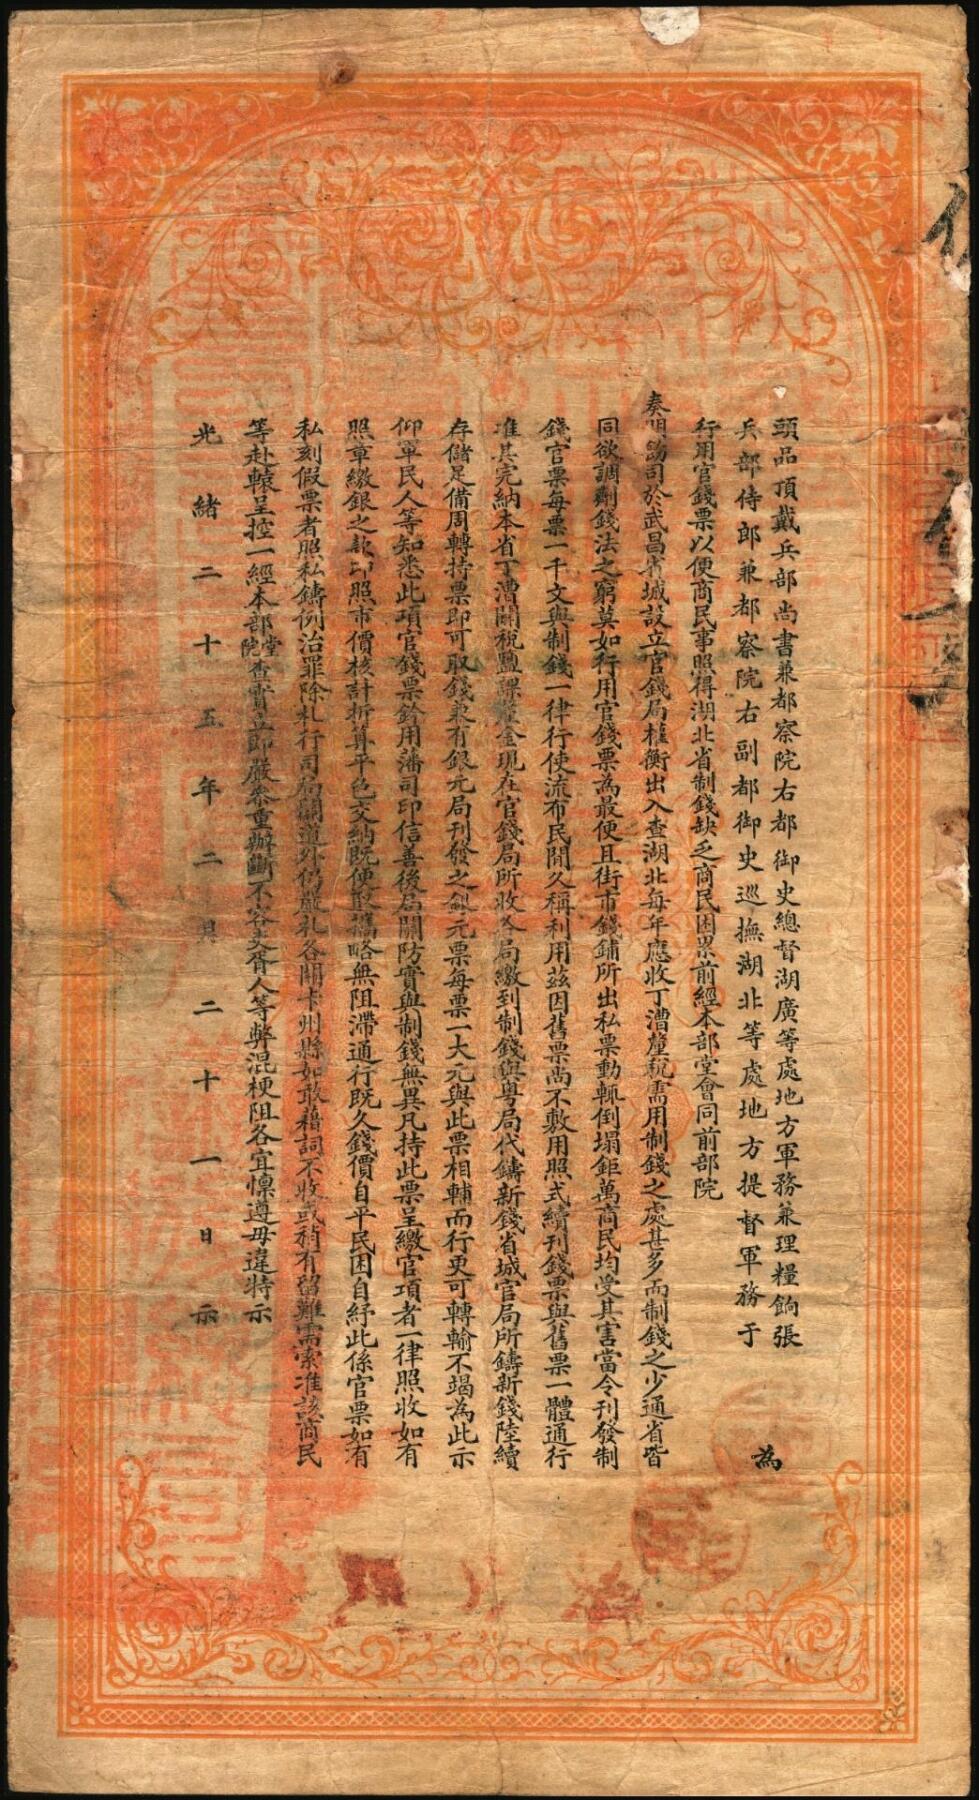 頭品頂戴兵部尚書兼都察院右都御史總督湖廣等處地方軍務兼理糧餉張
兵部侍郎兼都察院右副都御史巡撫湖北等處地方提督軍務于
為
行用官錢票以便商民事照得湖北省制錢缺乏商民困累前經本部堂會同前部院
奏明飭司於武昌省城設立官錢局權衡出入查湖北每年應收丁漕釐稅需用制錢之處甚多而制錢之少通省皆
同欲調劑錢法之窮莫如行用官錢票為最便且街市錢鋪所出私票動輒倒塌鉅萬商民均受其害當令刊發制
錢官票每票一千文與制錢一律行使流布民間久稱利用茲因舊票尚不敷用照式續刊錢票與舊票一體通行
准其完納本省丁漕關稅鹽課釐金現在官錢局所收各局繳到制錢與粵局代鑄新錢省城官局所鑄新錢陸續
存儲足備周轉持票即可取錢兼有銀元局刊發之銀元票每票一大元與此票相輔而行更可轉輸不竭為此示
仰軍民人等知悉此項官錢票鈐用藩司印信善後局關防實與制錢無異凡持此票呈繳官項者一律照收如有
照章繳銀之款即照市價核計折算平色交納既便取攜略無阻滯通行既久錢價自平民困自紓此係官票如有
私刻假票者照私鑄例治罪除札行司局關道外仍嚴札各關卡州縣如敢藉詞不收或稍有留難需索准該商民
等赴轅呈控一經本部堂院查實立即嚴參重辦斷不容吏胥人等弊混梗阻各宜懍遵毋違特示
光緒二十五年二月二十一日示